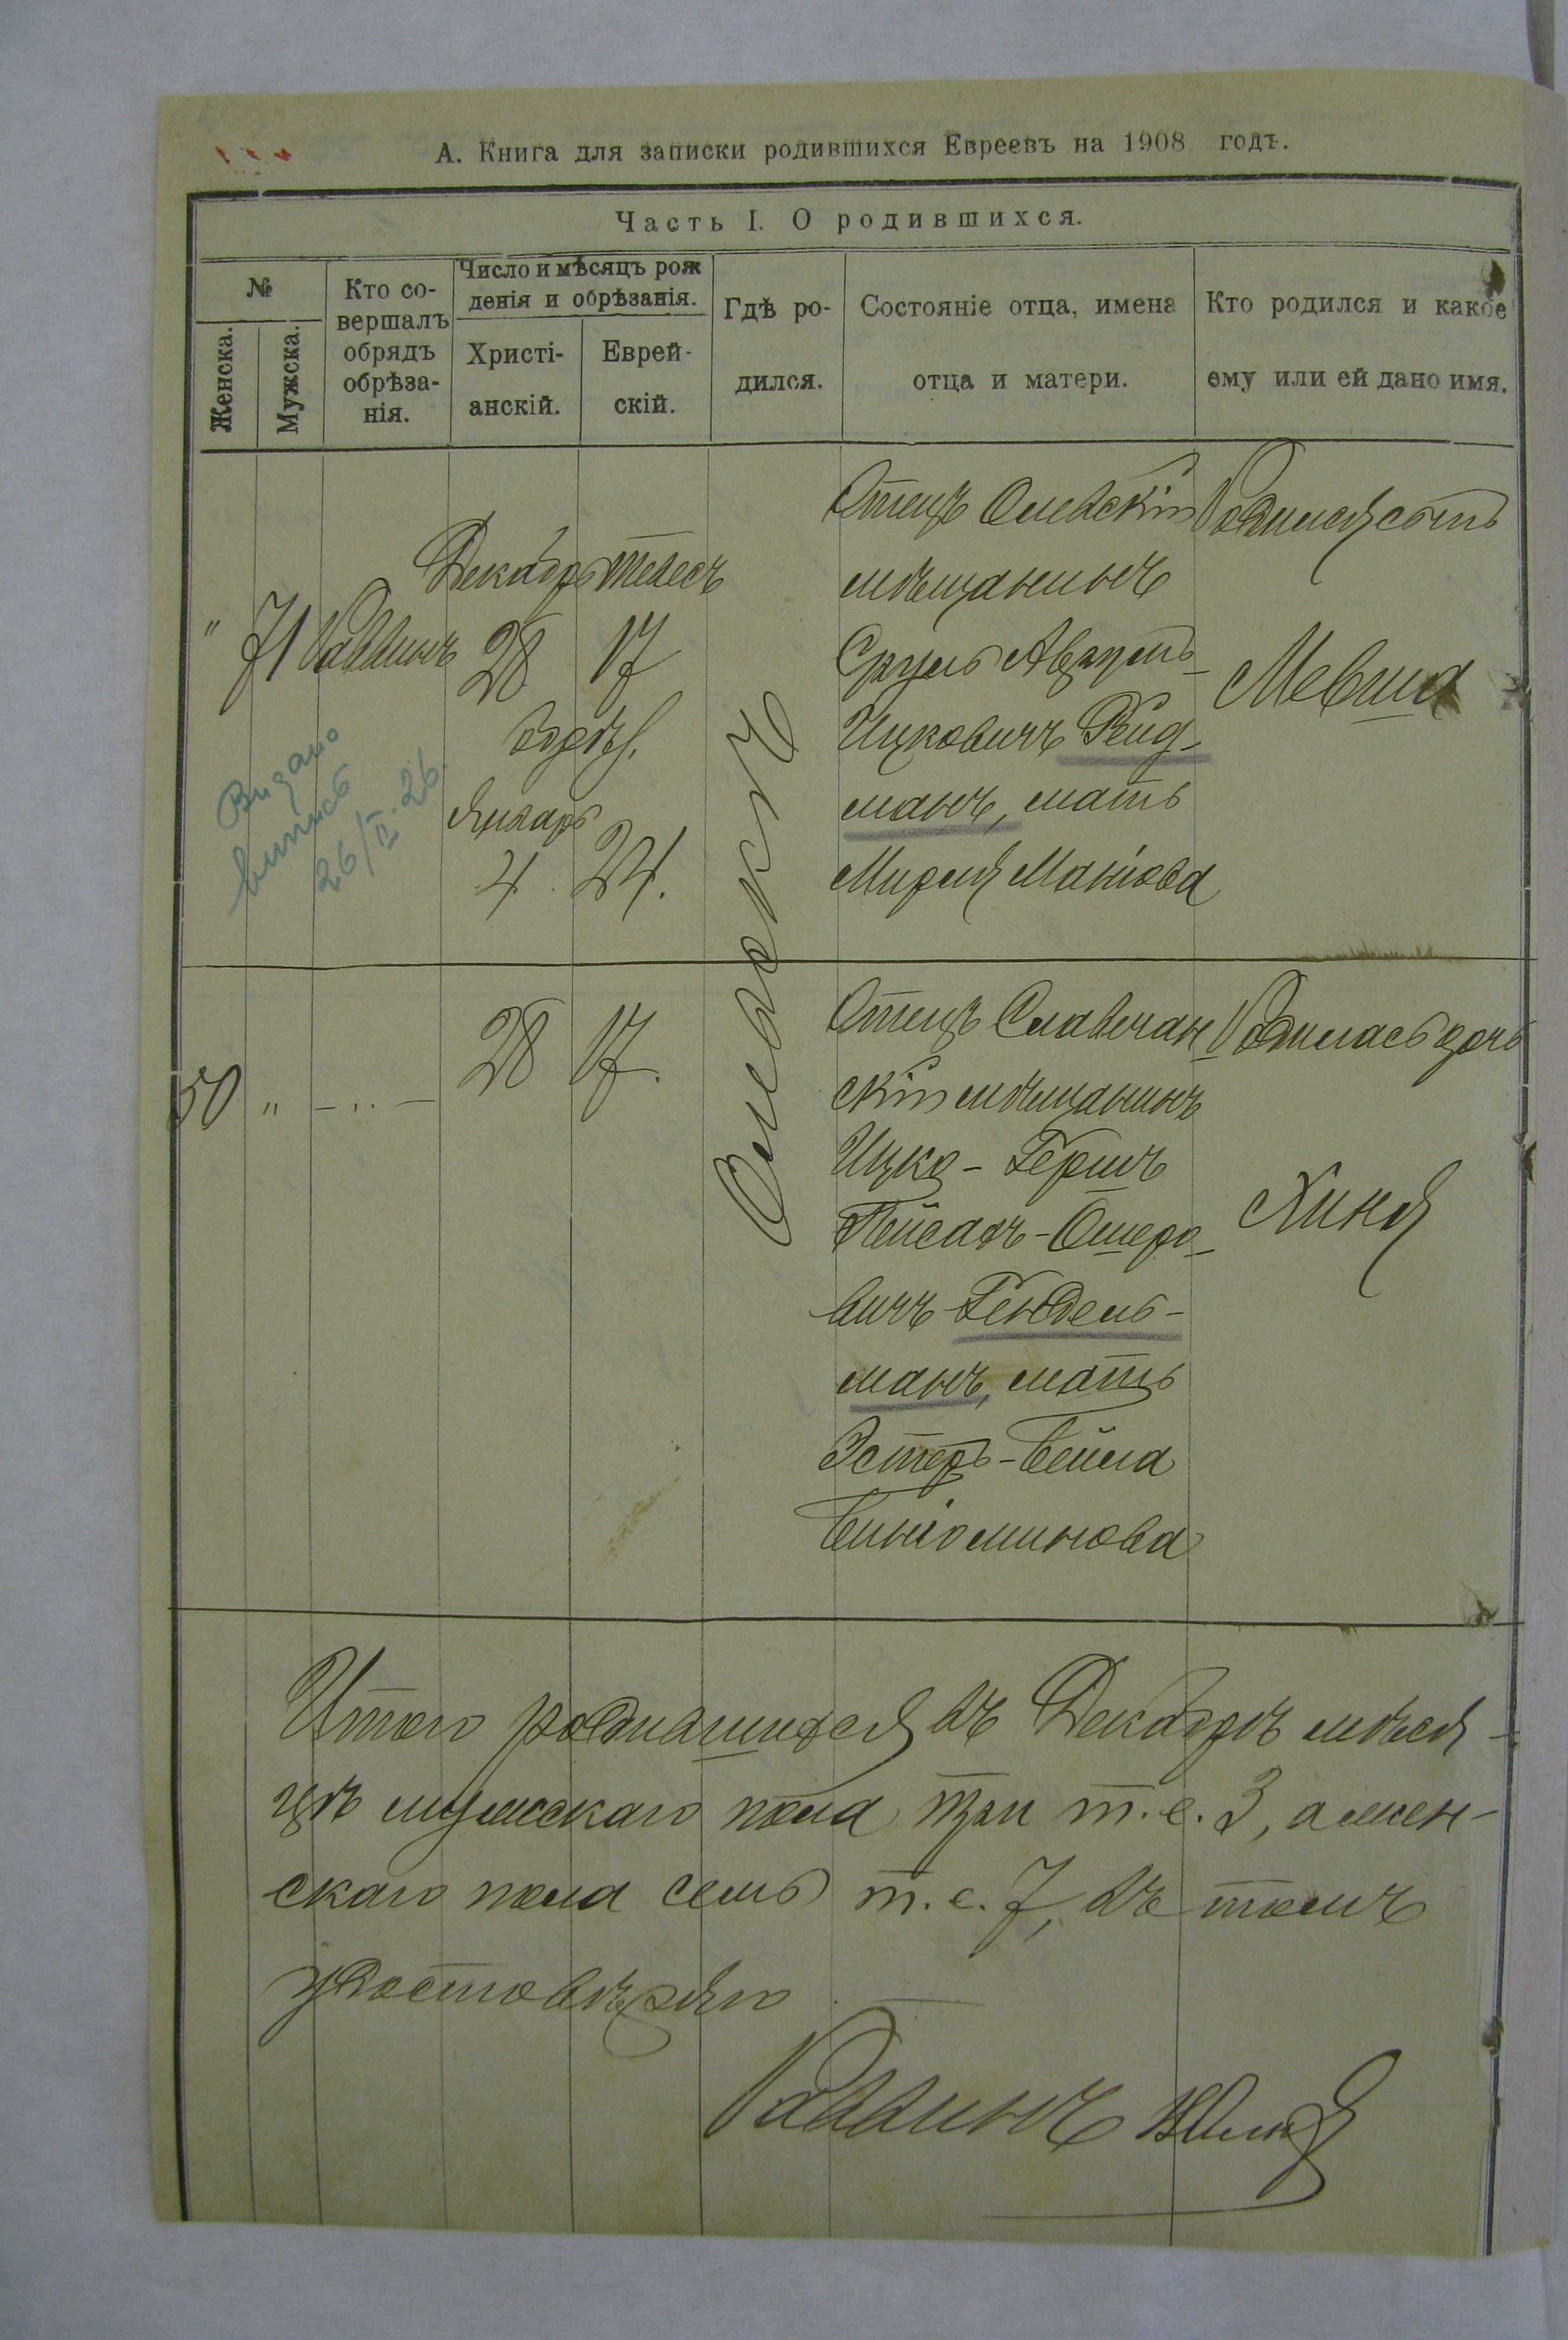 А. Книга для записки родившихся Евреевъ на 1908 годъ.
Часть I. О родившихся.
№
Женска.
Мужска.
Кто со-
вершалъ
обрядъ
обрѣза-
нія.
Число и мѣсяцъ рож
денія и обрѣзанія.
Христі-
анскій.
Еврей-
скій.
Гдѣ ро-
дился.
Состояніе отца, имена
отца и матери.
Кто родился и какое
ему или ей дано имя.
" 71 Раввинъ
Декабрь
28
обрѣз.
Январь
4
Тевесъ
17
24.
Видано
випись
26/II.26.
Олевскъ
Отецъ Олевскій
мѣщанинъ
Сруль
Ицковичъ Рейд-
манъ, мать
Мирля Маніова
Родился сынъ
Мевша
50 " — " —
28 17.
Отецъ Славечан-
скій мѣщанинъ
Ицко-Гершъ
Пейсахъ-Ошеро-
вичъ Гендель-
манъ, мать
Эстеръ-Бейла
Биніоминова
Родилась дочь
Хиня
Итого родившихся въ Декабрѣ мѣся-
цѣ мужскаго пола три т.е. 3, а жен-
скаго пола семь т.е. 7, въ томъ
удостовѣряю
Раввинъ